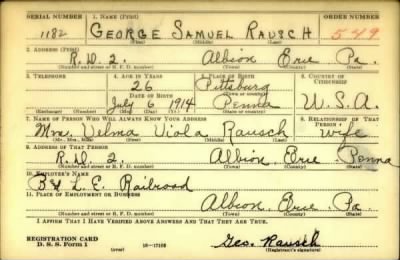 SERIAL NUMBER 1. NAME (Print) ORDER NUMBER
1182 GEORGE SAMUEL RAUSCH 549
(First) (Middle) (Last)
2. ADDRESS (Print)
R.D. 2. Albion Erie Pa.
(Number and street or R. F. D. number) (Town) (County) (State)
3. TELEPHONE 4. AGE IN YEARS 5. PLACE OF BIRTH 6. COUNTRY OF CITIZENSHIP
26 Pittsburg
DATE OF BIRTH (Town or county)
July 6 1914 Penna U.S.A.
(Exchange) (Number) (Mo.) (Day) (Yr.) (State or country)
7. NAME OF PERSON WHO WILL ALWAYS KNOW YOUR ADDRESS 8. RELATIONSHIP OF THAT PERSON
Mrs. Velma Viola Rausch wife
(Mr., Mrs., Miss) (First) (Middle) (Last)
9. ADDRESS OF THAT PERSON
R.D. 2. Albion, Erie Penna
(Number and street or R. F. D. number) (Town) (County) (State)
10. EMPLOYER'S NAME
B & L. E. Railroad
11. PLACE OF EMPLOYMENT OR BUSINESS
Albion, Erie Pa.
(Number and street or R. F. D. number) (Town) (County) (State)
I AFFIRM THAT I HAVE VERIFIED ABOVE ANSWERS AND THAT THEY ARE TRUE.
REGISTRATION CARD
D. S. S. Form 1 (over) 16-17105 Geo. Rausch
(Registrant's signature)